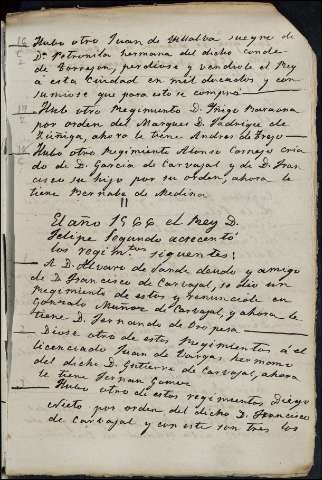 16 Hubo otro Juan de Villalba suegro de
Dª Petronila hermana del dicho conde
de Torrejon, perdiose y vendiole el Rey
a esta Ciudad en mil ducados y con
sumiose que para esto se compró
17 Hubo otro Regimiento D. Iñigo Baraona
por orden del Marques D. Fadrique de
Zúñiga, ahora le tiene Andres de Trejo
18 Hubo otro Regimiento Alonso Cornejo cria
do de D. Garcia de Carvajal y de D. Fran
cisco su hijo por su orden, ahora le
tiene Bernabe de Medina
El año 1566 el Rey D.
Felipe Segundo acrecentó
los regim.tos siguentes:
A D. Alvaro de Sande deudo y amigo
de D. Francisco de Carvajal, se dio un
Regimiento de estos y renunciole en
Gonzalo Muñoz de Carvajal, y ahora le
tiene D. Fernando de Oropesa
2 Diose otro de estos Regimientos á el
licenciado Juan de Vargas hermano
del dicho D. Gutierre de Carvajal, ahora
le tiene Fernan Gomez
Hubo otro de estos regimientos Diego
Nieto por orden del dicho D. Francisco
de Carbajal y con este son tres los